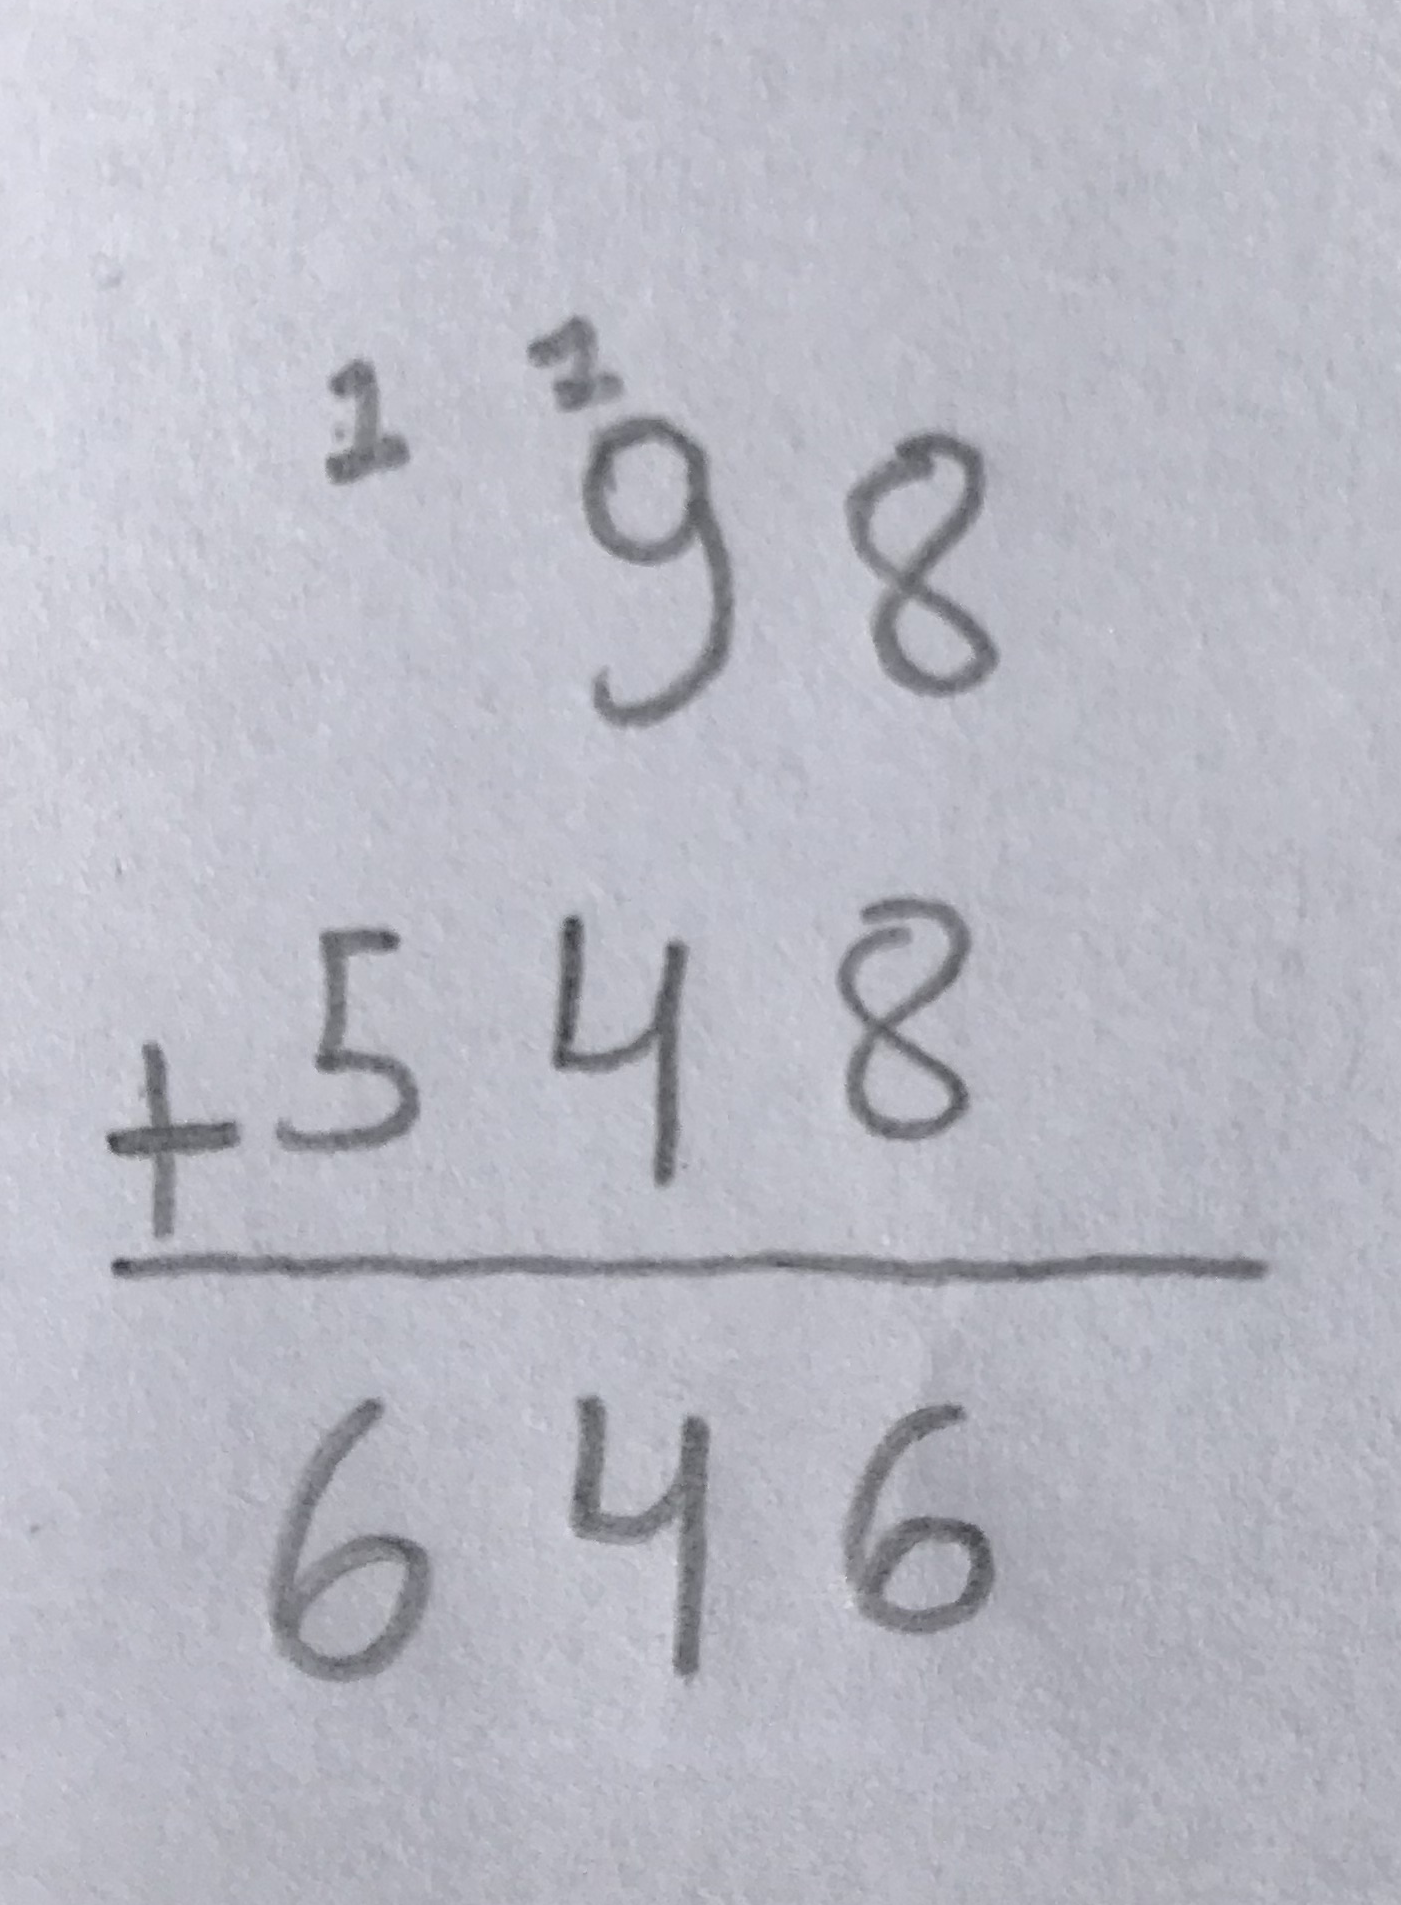 1 1
98
+548
646